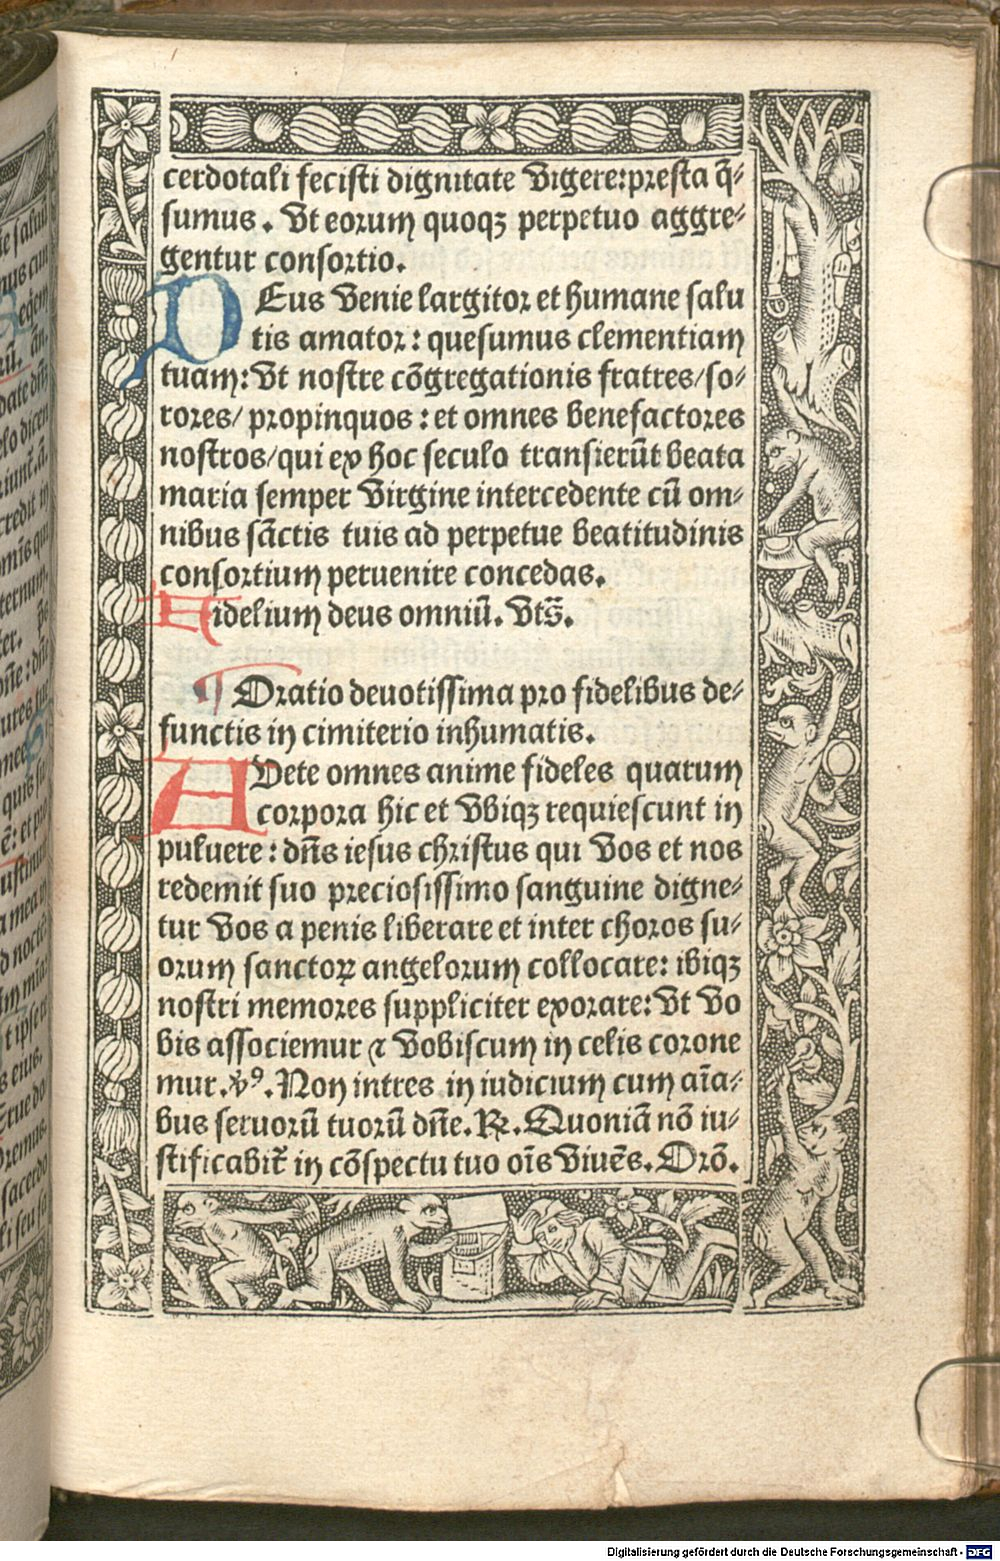 cerdotali fecisti dignitate vigere: presta q̃⸗
sumus. Vt eorum quoqꝫ perpetuo aggre⸗
gentur consortio.
DEus venie largitor et humane salu
tis amator: quesumus clementiam
tuam: Vt nostre cõgregationis fratres/so⸗
rores/ propinquos: et omnes benefactores
nostros/qui ex hoc seculo transierũt beata
maria semper virgine intercedente cũ om⸗
nibus sãctis tuis ad perpetue beatitudinis
consortium peruenire concedas.
Fidelium deus omniũ. Vts̃.
¶ Oratio deuotissima pro fidelibus de⸗
functis in cimiterio inhumatis.
AVete omnes anime fideles quarum
corpora hic et vbiqꝫ requiescunt in
puluere: dñs iesus christus qui vos et nos
redemit suo preciosissimo sanguine digne⸗
tur vos a penis liberare et inter choros su⸗
orum sanctoꝝ angelorum collocare: ibiqꝫ
nostri memores suppliciter exorare: Vt vo
bis associemur ⁊ vobiscum in celis corone
mur. ꝟꝰ. Non intres in iudicium cum aĩa⸗
bus seruorũ tuorũ dñe. ℞. Quoniã nõ iu⸗
stificabit̃ in cõspectu tuo oĩs viuẽs. Orõ.
Digitalisierung gefördert durch die Deutsche Forschungsgemeinschaft - DFG